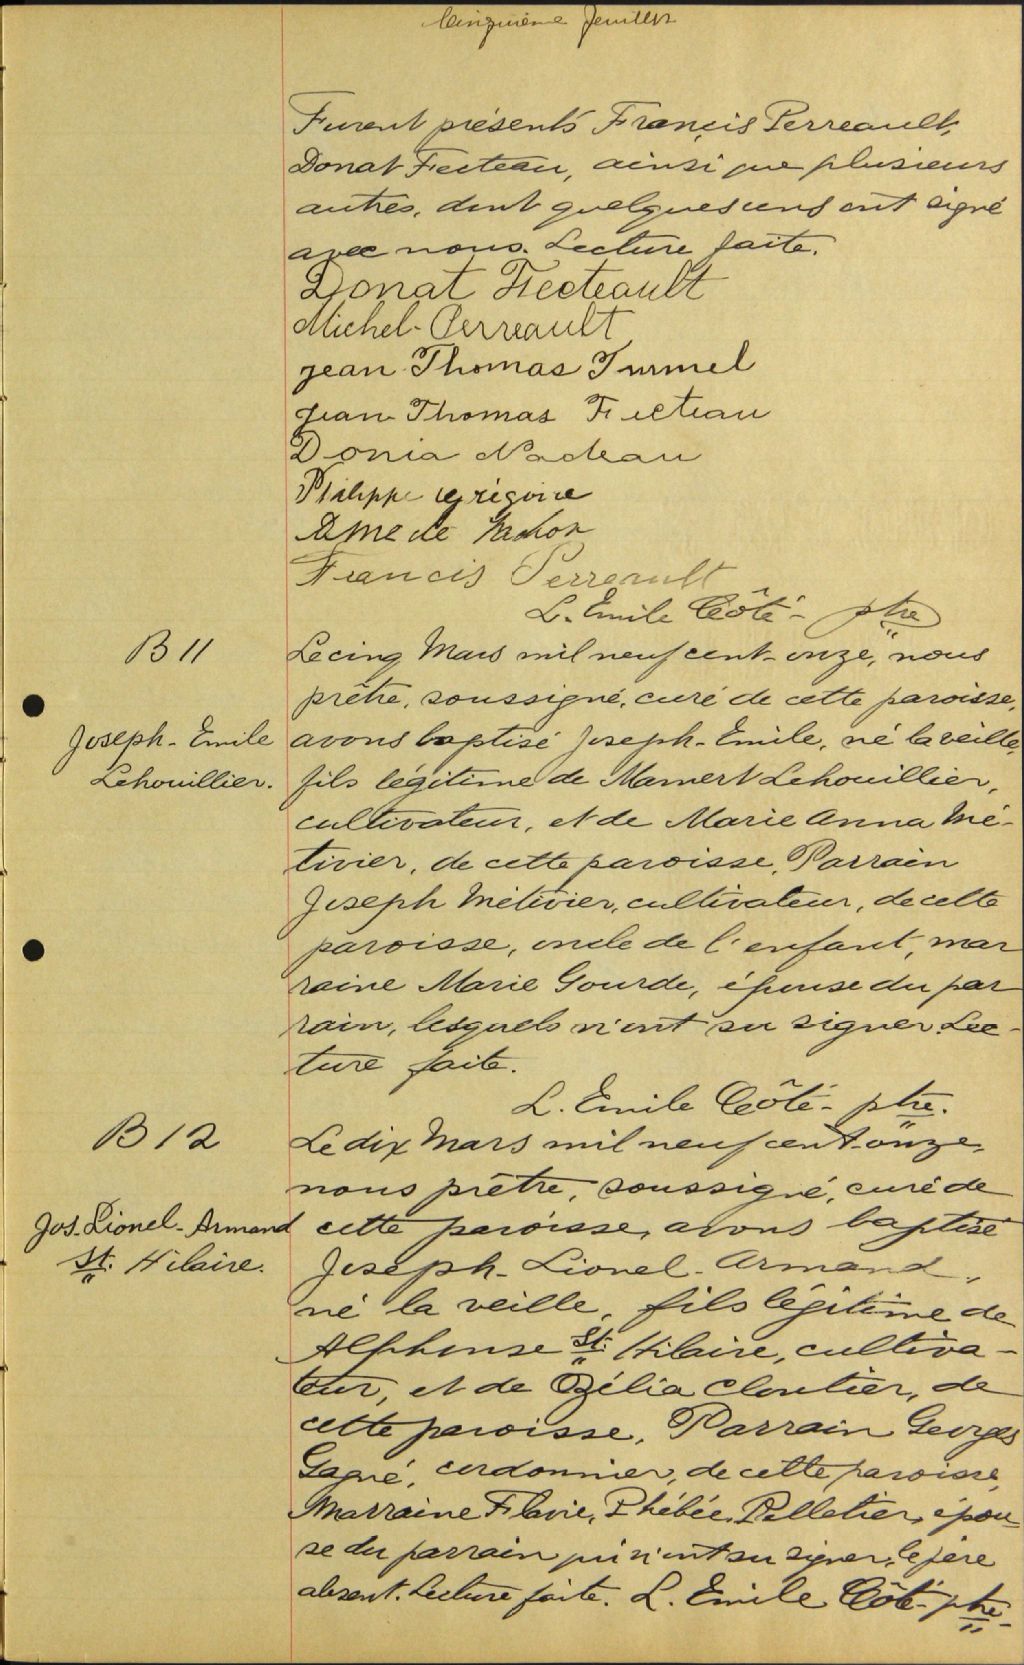 Cinquième feuillet
Furent présents Francis Perreault,
Donat Fecteau, ainsi que plusieurs
autres, dont quelquesuns ont signé
avec nous. Lecture faite.
Donat Fecteault
Michel Perreault
Jean Thomas Turmel
Jean Thomas Fecteau
Donia Nadeau
Philippe Grégoire
Amede Vachon
Francis Perreault
L. Emile Côté - ptre
B 11
Joseph-Emile
Lehouillier.
Le cinq Mars mil neuf cent-onze, nous
prêtre, soussigné, curé de cette paroisse,
avons baptisé Joseph-Emile, né la veille,
fils légitime de Mamert Lehouillier,
cultivateur, et de Marie Anna Mé-
tivier, de cette paroisse, Parrain
Joseph Métivier, cultivateur, de cette
paroisse, oncle de l'enfant, mar
raine Marie Gourde, épouse du par
rain, lesquels n'ont su signer. Lec-
ture faite.
L. Emile Côté - ptre.
B 12
Jos. Lionel-Armand
St. Hilaire.
Le dix Mars mil neuf cent-onze,
nous prêtre, soussigné, curé de
cette paroisse, avons baptisé
Joseph-Lionel-Armand,
né la veille, fils légitime de
Alphonse St. Hilaire, cultiva-
teur, et de Ozélia Cloutier, de
cette paroisse, Parrain Georges
Gagné, cordonnier, de cette paroisse,
Marraine Flavie, Phébée, Pelletier, épou-
se du parrain qui n'ont su signer, le père
absent. Lecture faite. L. Emile Côté - ptre -